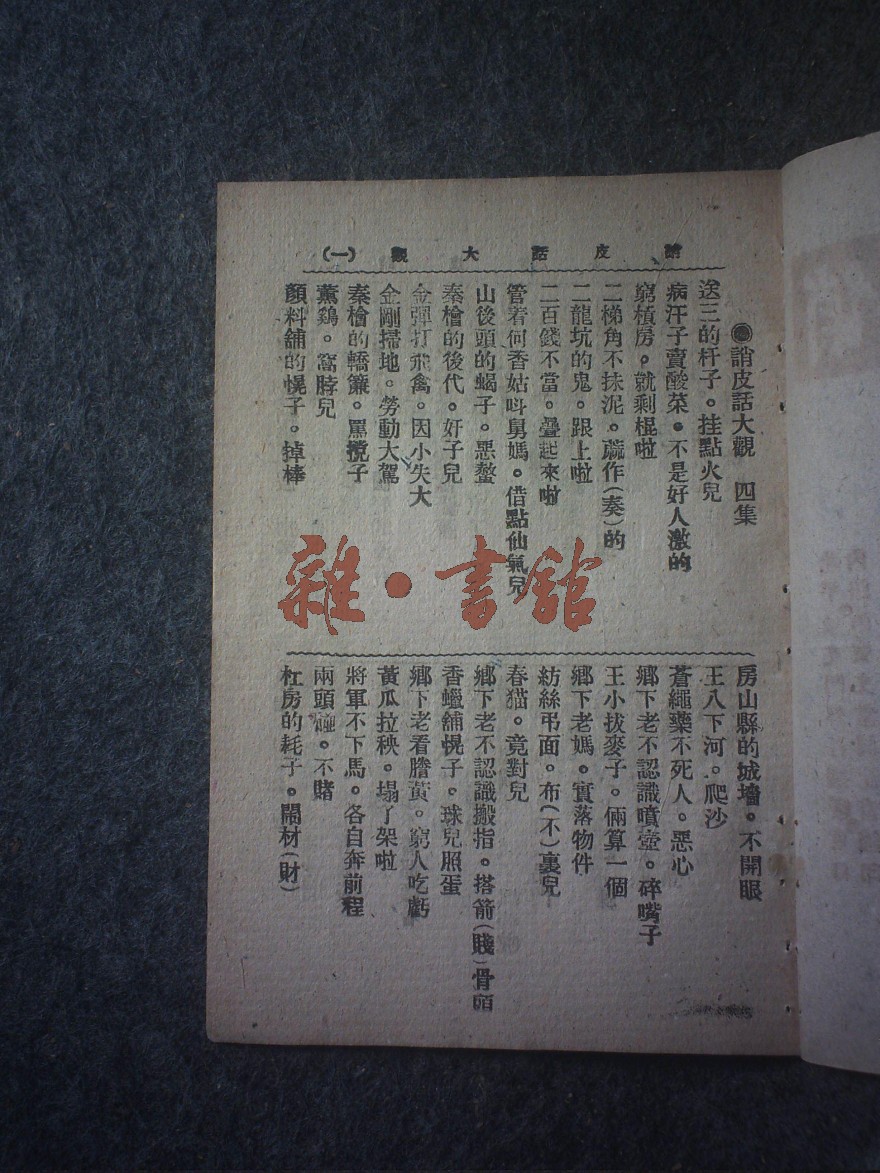 誚皮話大觀 (一)
●誚皮話大觀 四集
送三的杆子。挂點火兒
病汗子賣酸菜。不是好人激的
窮槓房。就剩棍啦
二梯角不抹泥。蔴作(奏)的
二龍坑的鬼。跟上啦
二百錢不當。疊起來啦
管着何香姑呌舅媽。借點仙氣兒
山後頭的蝎子。惡螫
秦檜的後代。奸子兒
金彈打飛禽。因小失大
金剛掃地。勞動大駕
秦檜的轎簾。罵攪子
薰鷄。窩脖兒
顏料舖的幌子。掉棒
房山縣的城墻。不開眼
王八下河。爬沙
蒼繩藥不死人。惡心
鄉下老不認識噴壺。碎嘴子
王小拔麥子。倆算一個
鄉下老媽。實落物件
紡絲弔面。布(不)裏兒
春猫。竟對兒
鄉下老不認識搬指。搭箭(賤)骨頭
香蠟舖幌子。球兒照蛋
鄉下老看謄黃。窮人吃虧
黃瓜拉秧。塌了架啦
將軍不下馬。各自奔前程
兩頭碰。不賭
杠房的耗子。閙材(財)
雜·書舘